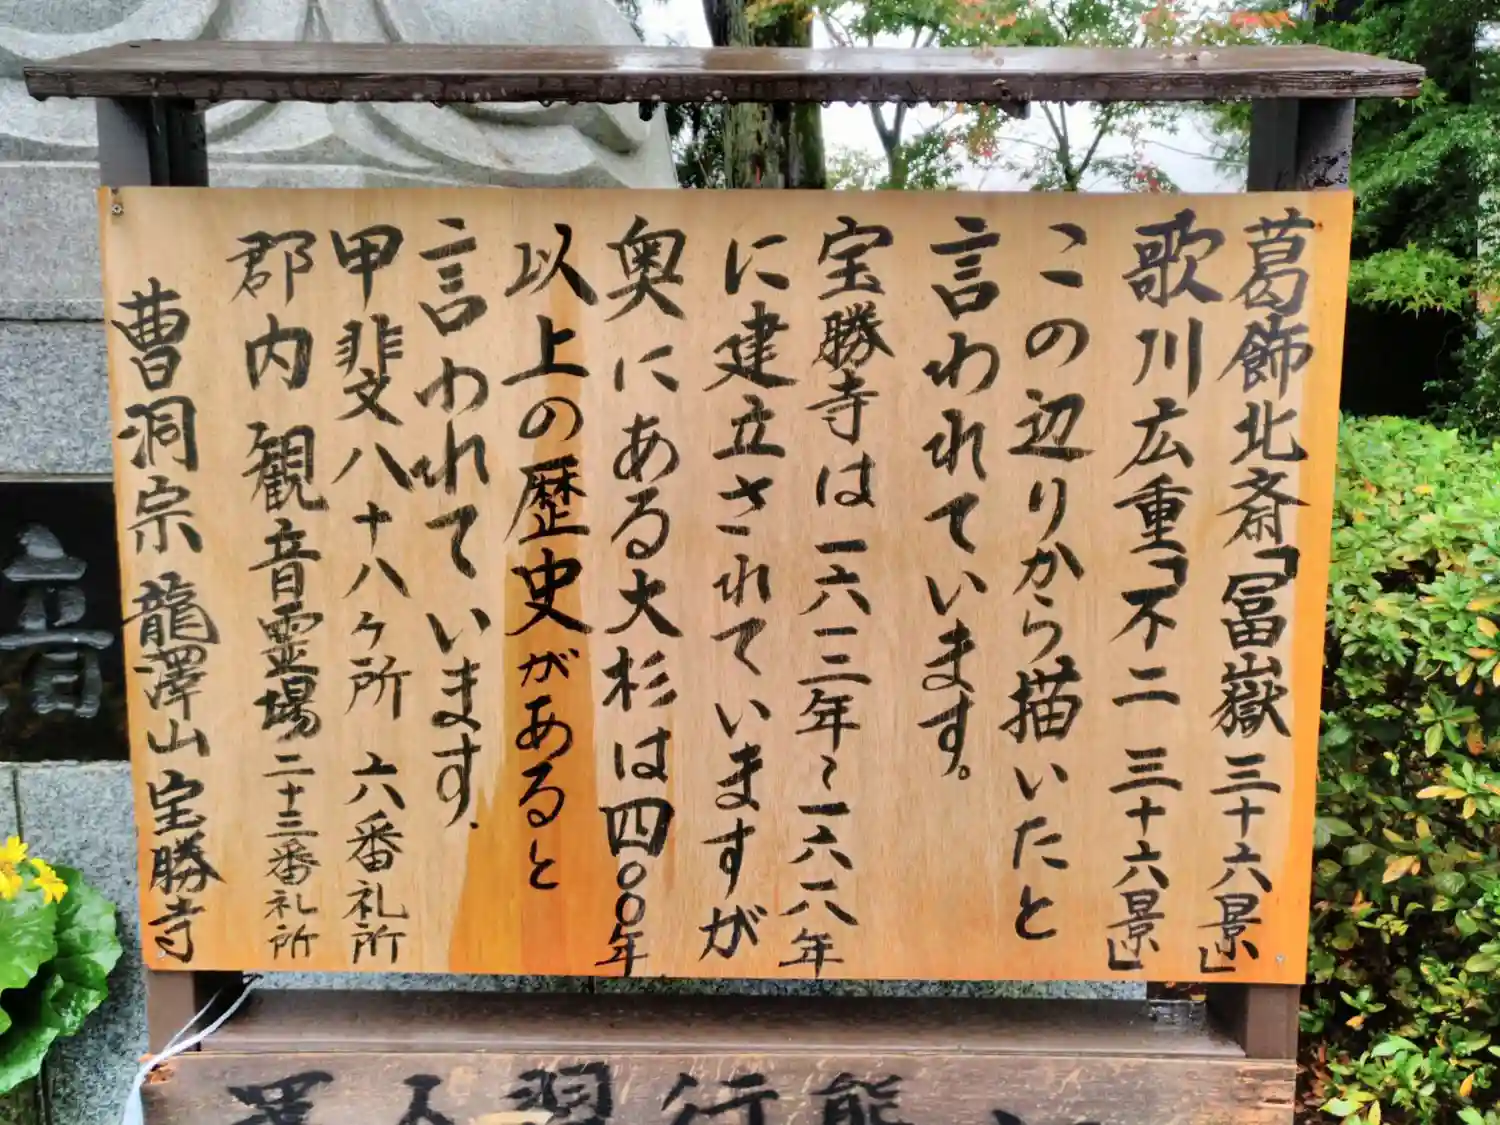 葛飾北斎「冨嶽三十六景」
歌川広重「不二三十六景」
この辺りから描いたと
言われています。
宝勝寺は一六一二年〜一六一八年
に建立されていますが
奥にある大杉は四〇〇年
以上の歴史があると
言われています.
甲斐八十八ヶ所 六番礼所
郡内観音霊場二十三番礼所
曹洞宗 龍澤山宝勝寺